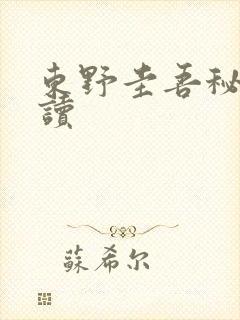 東野圭吾秘
讀
蘇希尔